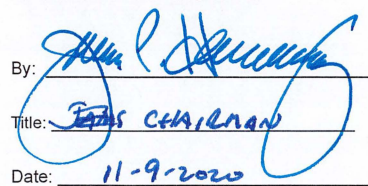 By:
Title: CHAIRMAN
Date: 11-9-2020